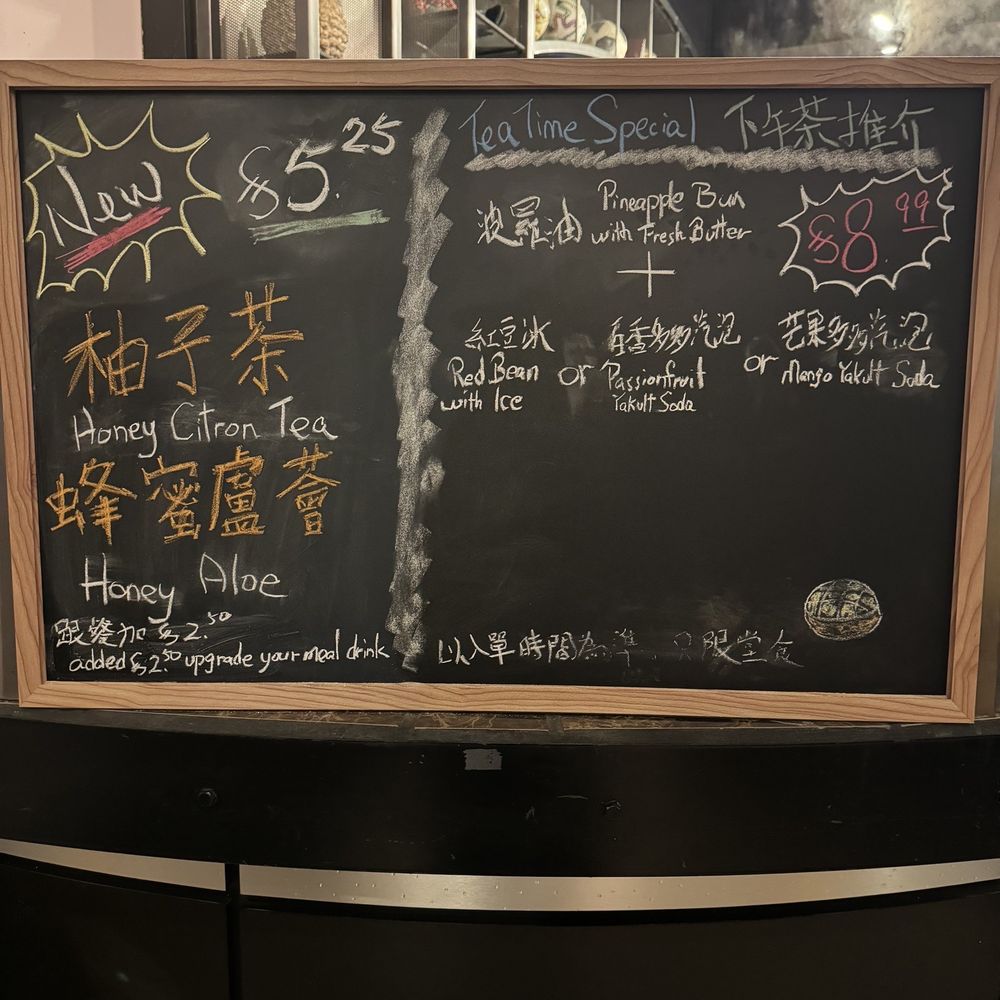 New
$5.25
柚子茶
Honey Citron Tea
蜂蜜盧薈
Honey Aloe
跟餐加 $2.50
added $2.50 upgrade your meal drink
Tea Time Special 下午茶推介
波羅油
Pineapple Bun
with Fresh Butter
$8.99
+
紅豆冰
Red Bean
with Ice
or
百香多多汽泡
Passionfruit
Yakult Soda
or
芒果多多汽泡
Mango Yakult Soda
以入單時間為準，只限堂食